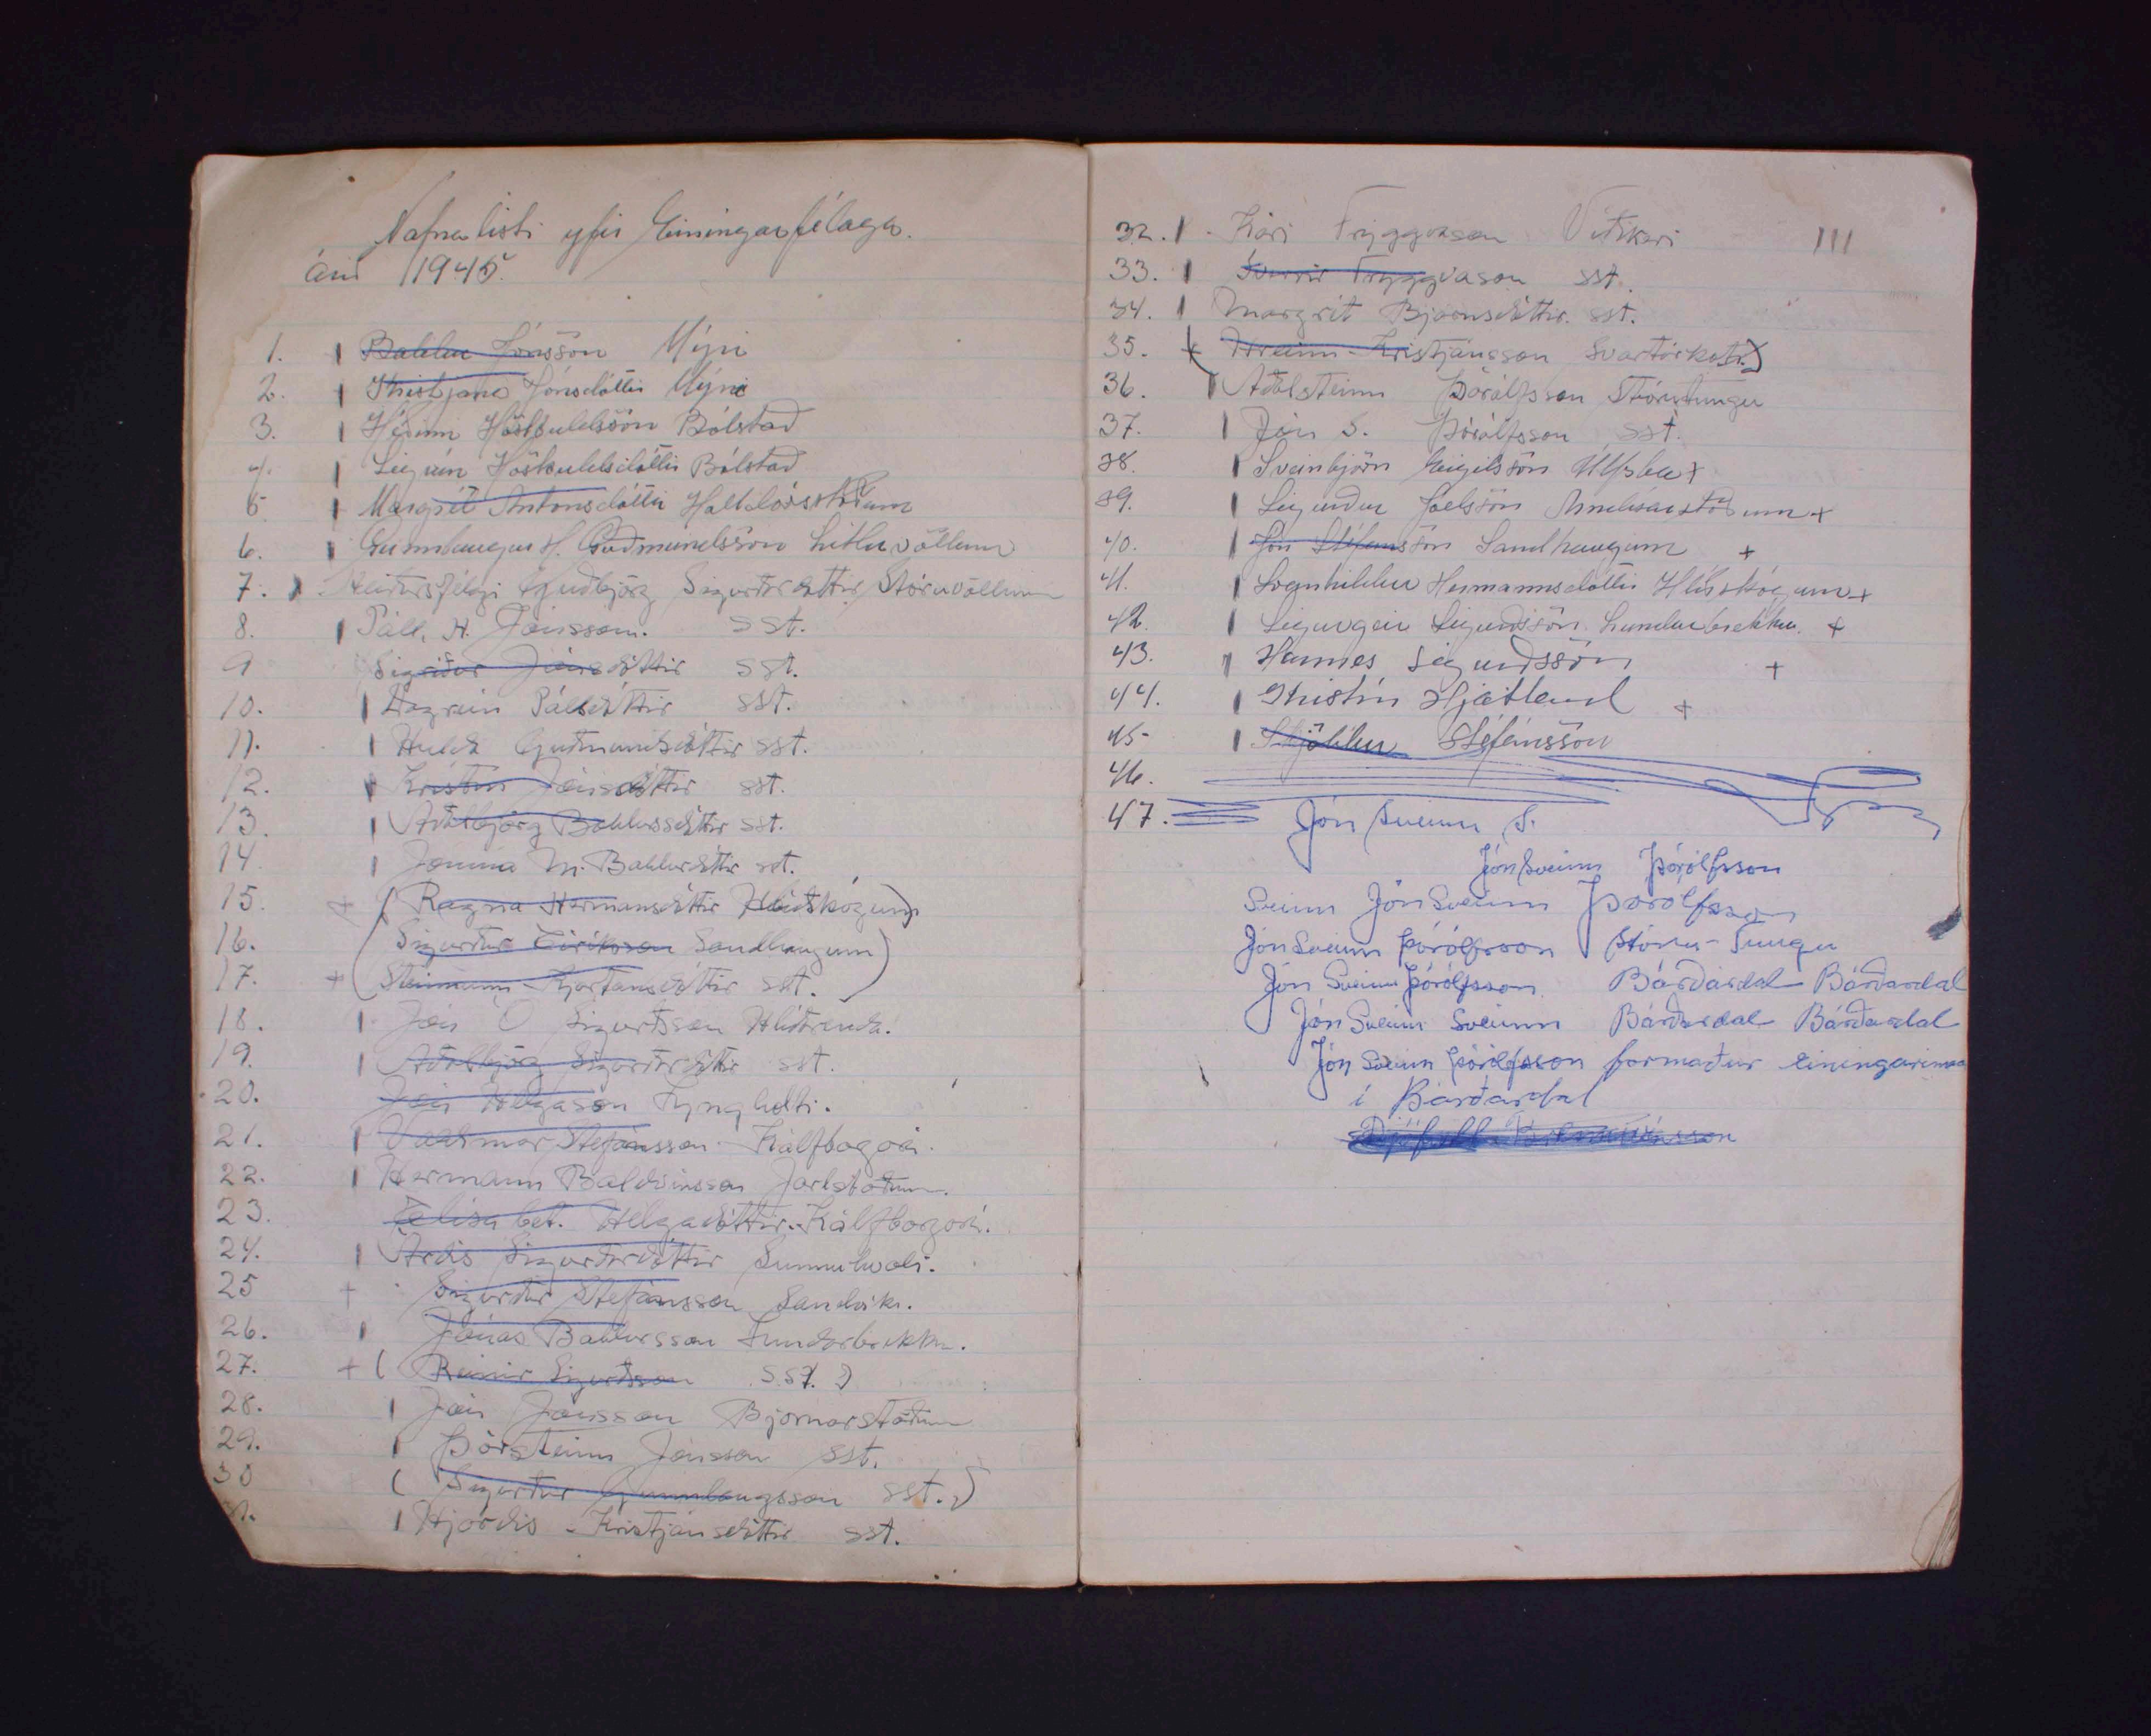 Nafnalisti yfir Einingarfélaga.
árið 1945.
1. Baldur Jónsson Mýri
2. Kristjana Jónsdóttir Mýri
3. Héðinn Höskuldsson Bólstað
4. Sigrún Höskuldsdóttir Bólstað
5 Margrét Antonsdóttir Halldórsstöðum
6. Gunnlaugur H. Guðmundsson Litluvöllum
7. Heiðursfélagi Guðbjörg Sigurðardóttir Stóruvöllum
8. Páll H. Jónsson. sst.
9 Sigríður Jónsdóttir sst.
10. Dagrún Pálsdóttir sst.
11. Hulda Guðmundsdóttir sst.
12. Kristín Jónsdóttir sst.
13. Aðalbjörg Baldursdóttir sst.
14 Jónína M. Baldursdóttir sst.
15. + (Ragna Hermansdóttir Hlíðskógum)
16. (Sigurður Eiríksson Sandhaugum)
17. + (Steinunn Kjartansdóttir sst.)
18. Jón Ó Sigurðsson Hlíðrenda.
19. Aðalbjörg Sigurðardóttir sst.
20. Jón Helgason Lyngholti.
21. Valdimar Stefánsson Kálfborgará.
22. Hermann Baldvinsson Jarlstöðum.
23. Elísabet. Helgadóttir. Kálfborgará.
24. Árdís Sigurðardóttir Sunnuhvoli.
25 + Sigurður Stefánsson Sandvík.
26. Jónas Baldursson Lundarbrekku.
27. + (Reinir Sigurðsson s.st.)
28. Jón Jónsson Bjarnarstöðum
29. Þórsteinn Jónsson sst.
30 (Sigurður Gunnlaugsson sst.)
31. Hjördís Kristjánsdóttir sst.
32. Kári Tryggvason Víðikeri III
33. Sverrir Tryggvason sst.
34. Margrét Bjarnsdóttir. sst.
35. + (Hreinn Kristjánsson Svartárkoti)
36. Aðalsteinn Þórólfsson Stórutungu
37. Jón S. Þórólfsson sst.
38. Sveinbjörn Egilsson Úlfsbæ +
39. Sigurður Jóelsson Arndísarstöðum +
40. Jón Stefánsson Sandhaugum +
41. Svanhildur Hermannsdóttir Hlíðskógum +
42. Sigurgeir Sigurðsson Lundarbrekku. +
43. Hannes Sigurðsson +
44. Kristín Hjaltland +
45- Skjöldur Stefánsson
46.
47. Jón Sveinn S.
Jón Sveinn Þórólfsson
Sveinn Jón Sveinn Þórólfsson
Jón Sveinn Þórólfsson Stóru-Tungu
Jón Sveinn Þórólfsson Bárðardal Bárðardal
Jón Sveinn Sveinn Bárðardal Bárðardal
Jón Sveinn Þórólfsson formaður einingarinnar
í Bárðardal